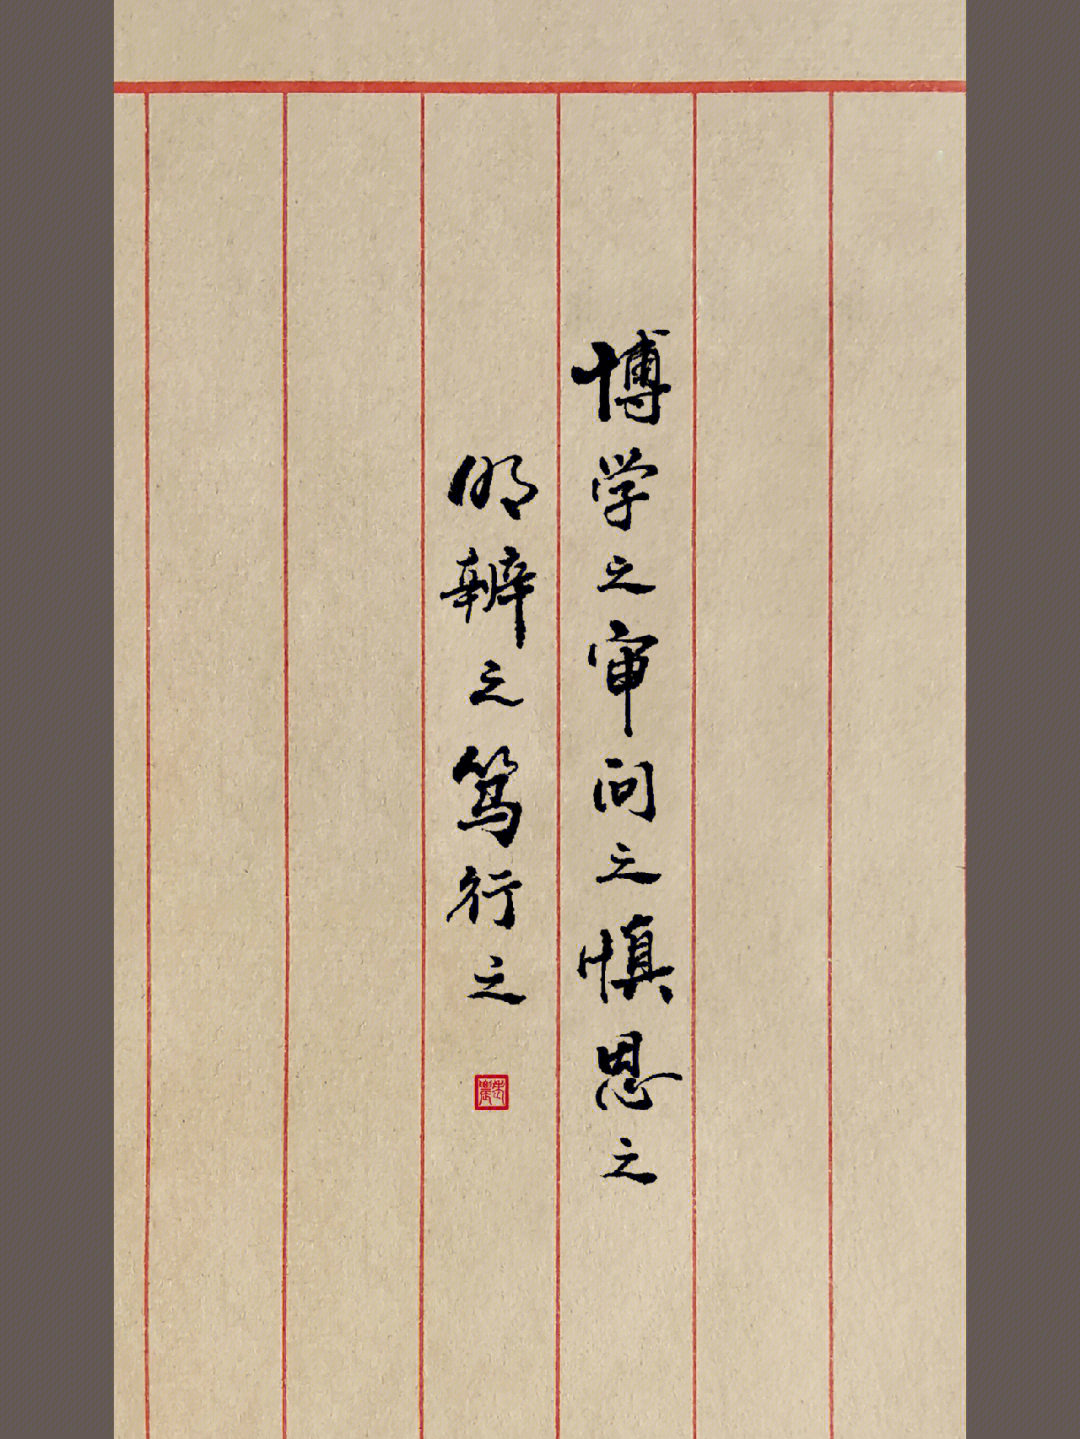 博学之审问之慎思之
明辨之笃行之